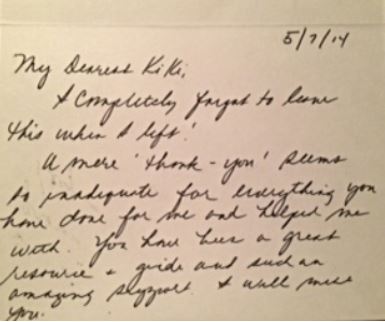 5/7/14
My Dearest KiKi,
I Completely forgot to leave
this when I left!
A mere 'thank-you' seems
so inadequate for everything you
have done for me and helped me
with. You have been a great
resource + guide and such an
amazing support. I will miss
you.